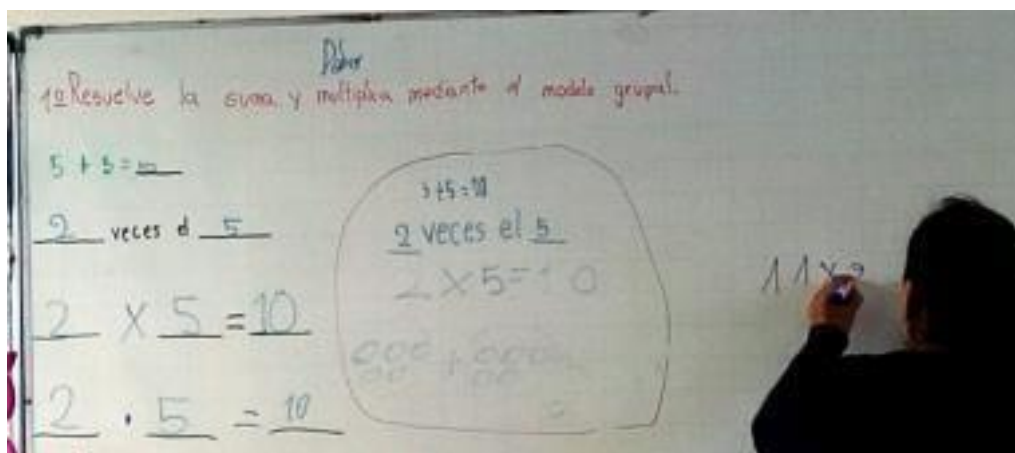 1º Resuelve la suma y multiplica mediante el modelo grupal.
5 + 5 = 10
2 veces el 5
2 X 5 = 10
2 · 5 = 10
5+5=10
2 veces el 5
2 X 5 = 10
11 x